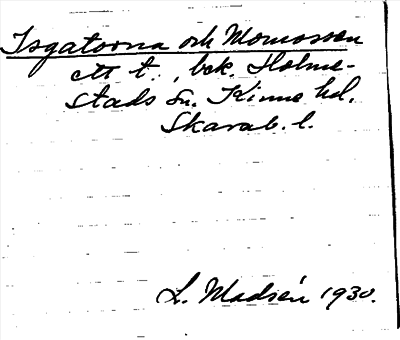 Isgatorna och Momossen
ett t., bek. Holme-
stads sn. Kinne hd.
Skarab. l.
L. Madsén 1930.